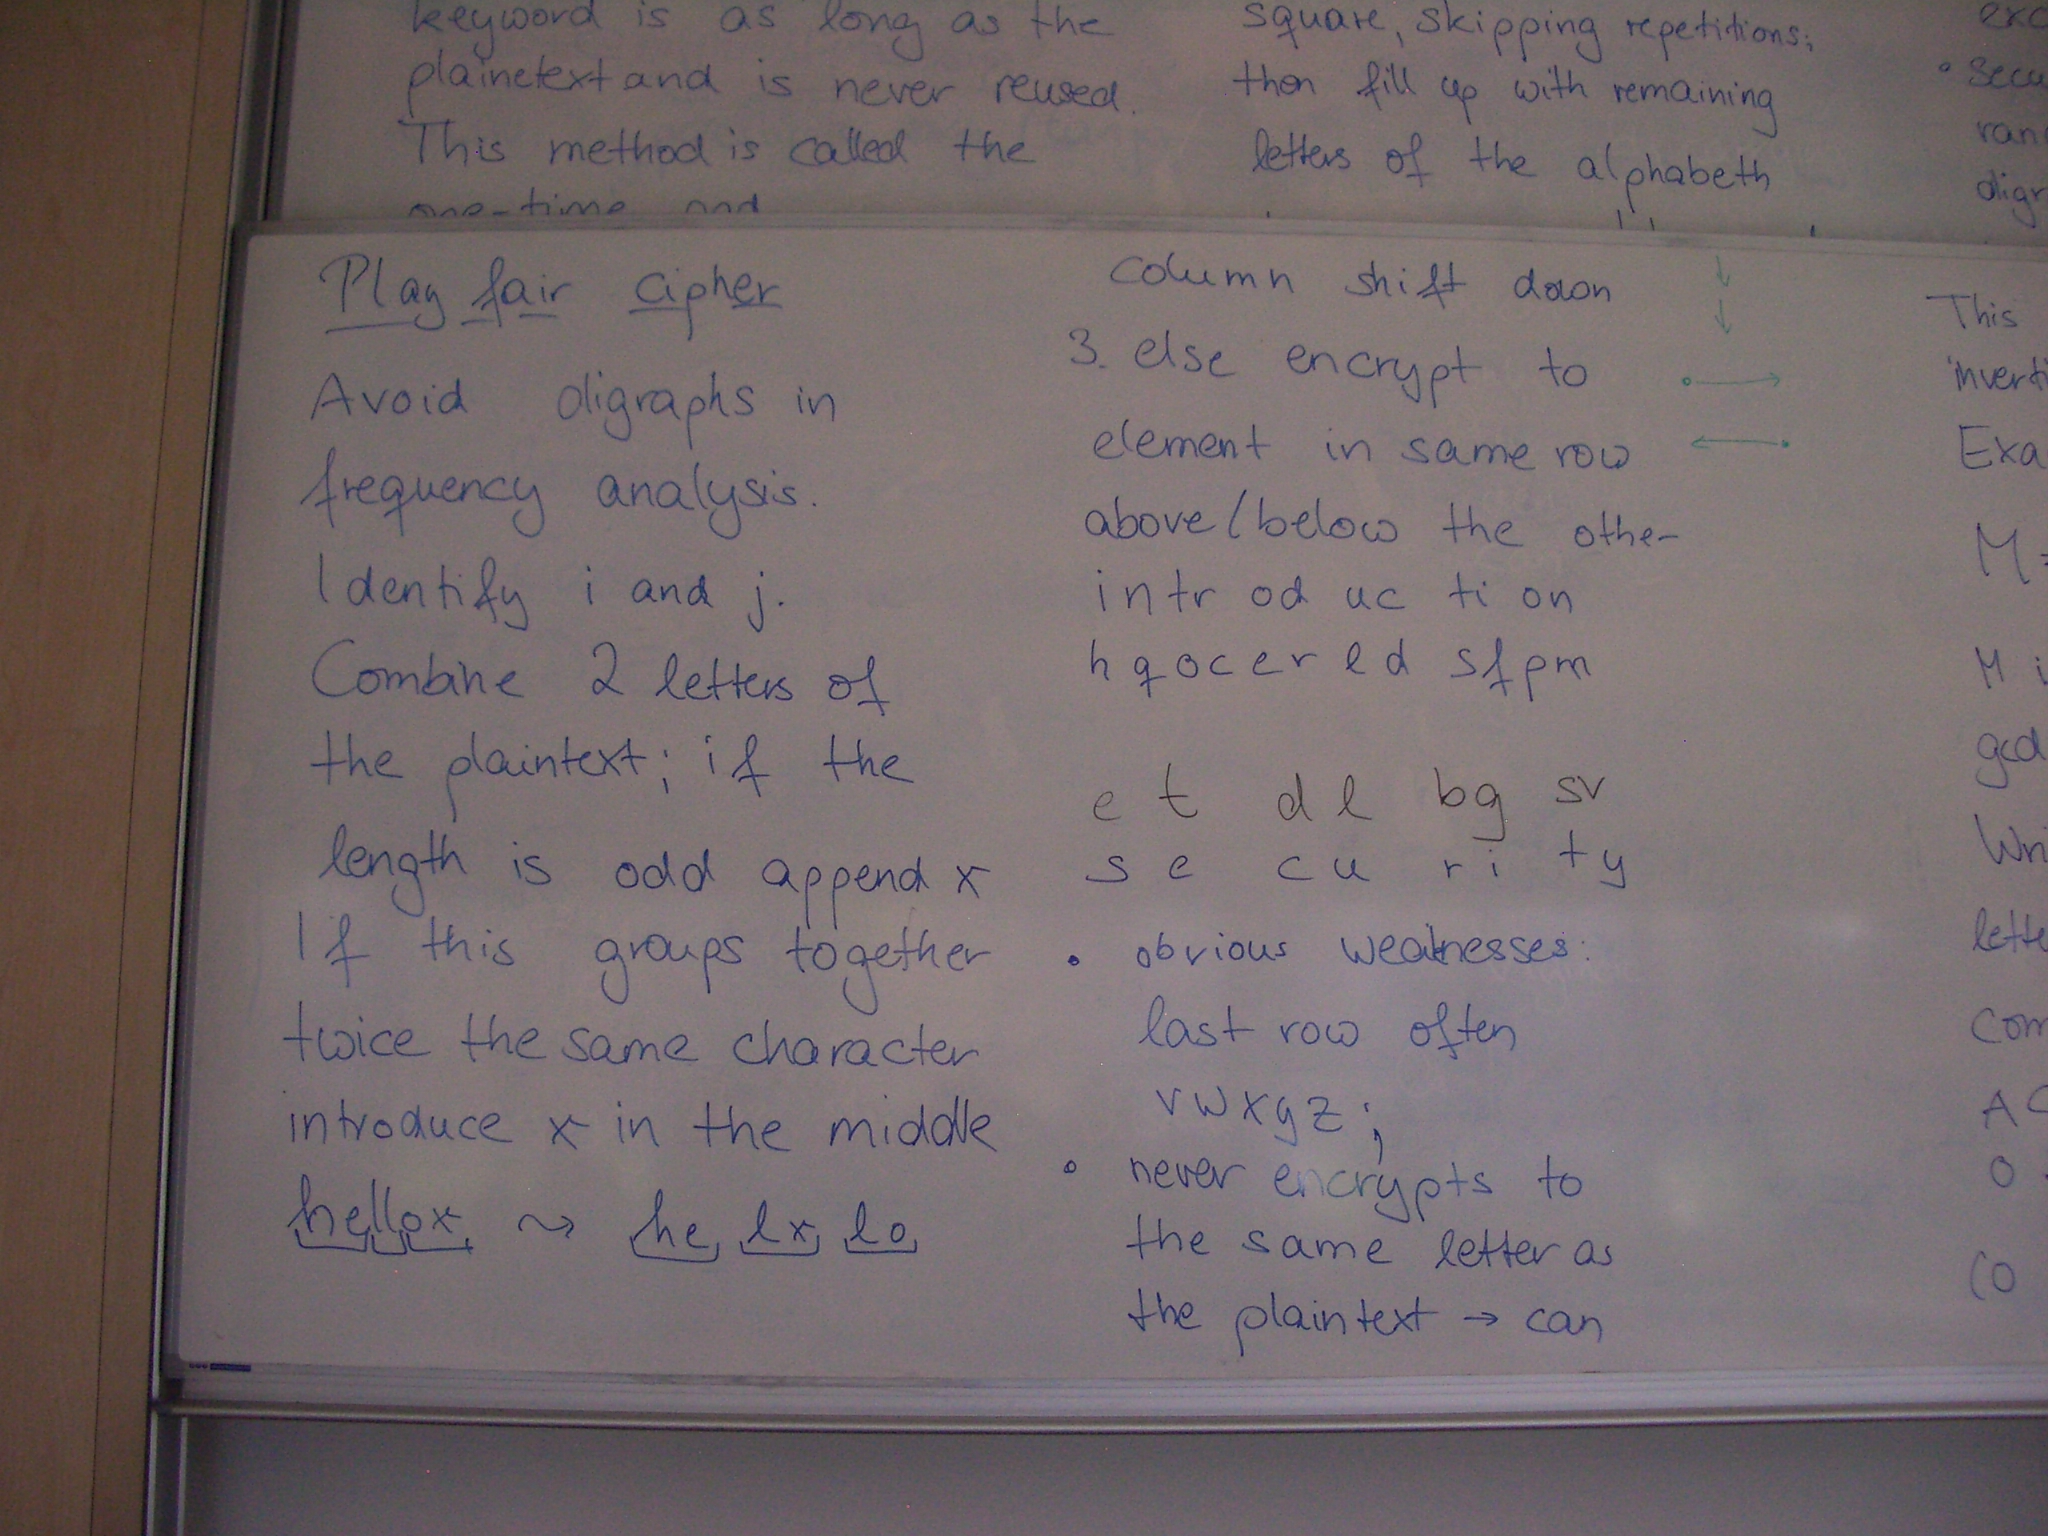 keyword is as long as the
plainetext and is never reused.
This method is called the
one-time
square, skipping repetitions;
then fill up with remaining
letters of the alphabeth
Play fair cipher
Avoid digraphs in
frequency analysis.
Identify i and j.
Combine 2 letters of
the plaintext; if the
length is odd append x
If this groups together
twice the same character
introduce x in the middle
hellox ⤳ he lx lo
column shift down ↓↓
3. else encrypt to →
element in same row ←
above/below the other
in tr od uc ti on
hqocer ld sfpm
et dl bg sv
se cu ri ty
• obvious weaknesses:
last row often
vwxyz;
• never encrypts to
the same letter as
the plaintext → can
This
Exa
M =
M i
gcd
Wri
lette
com
AC
O
CO